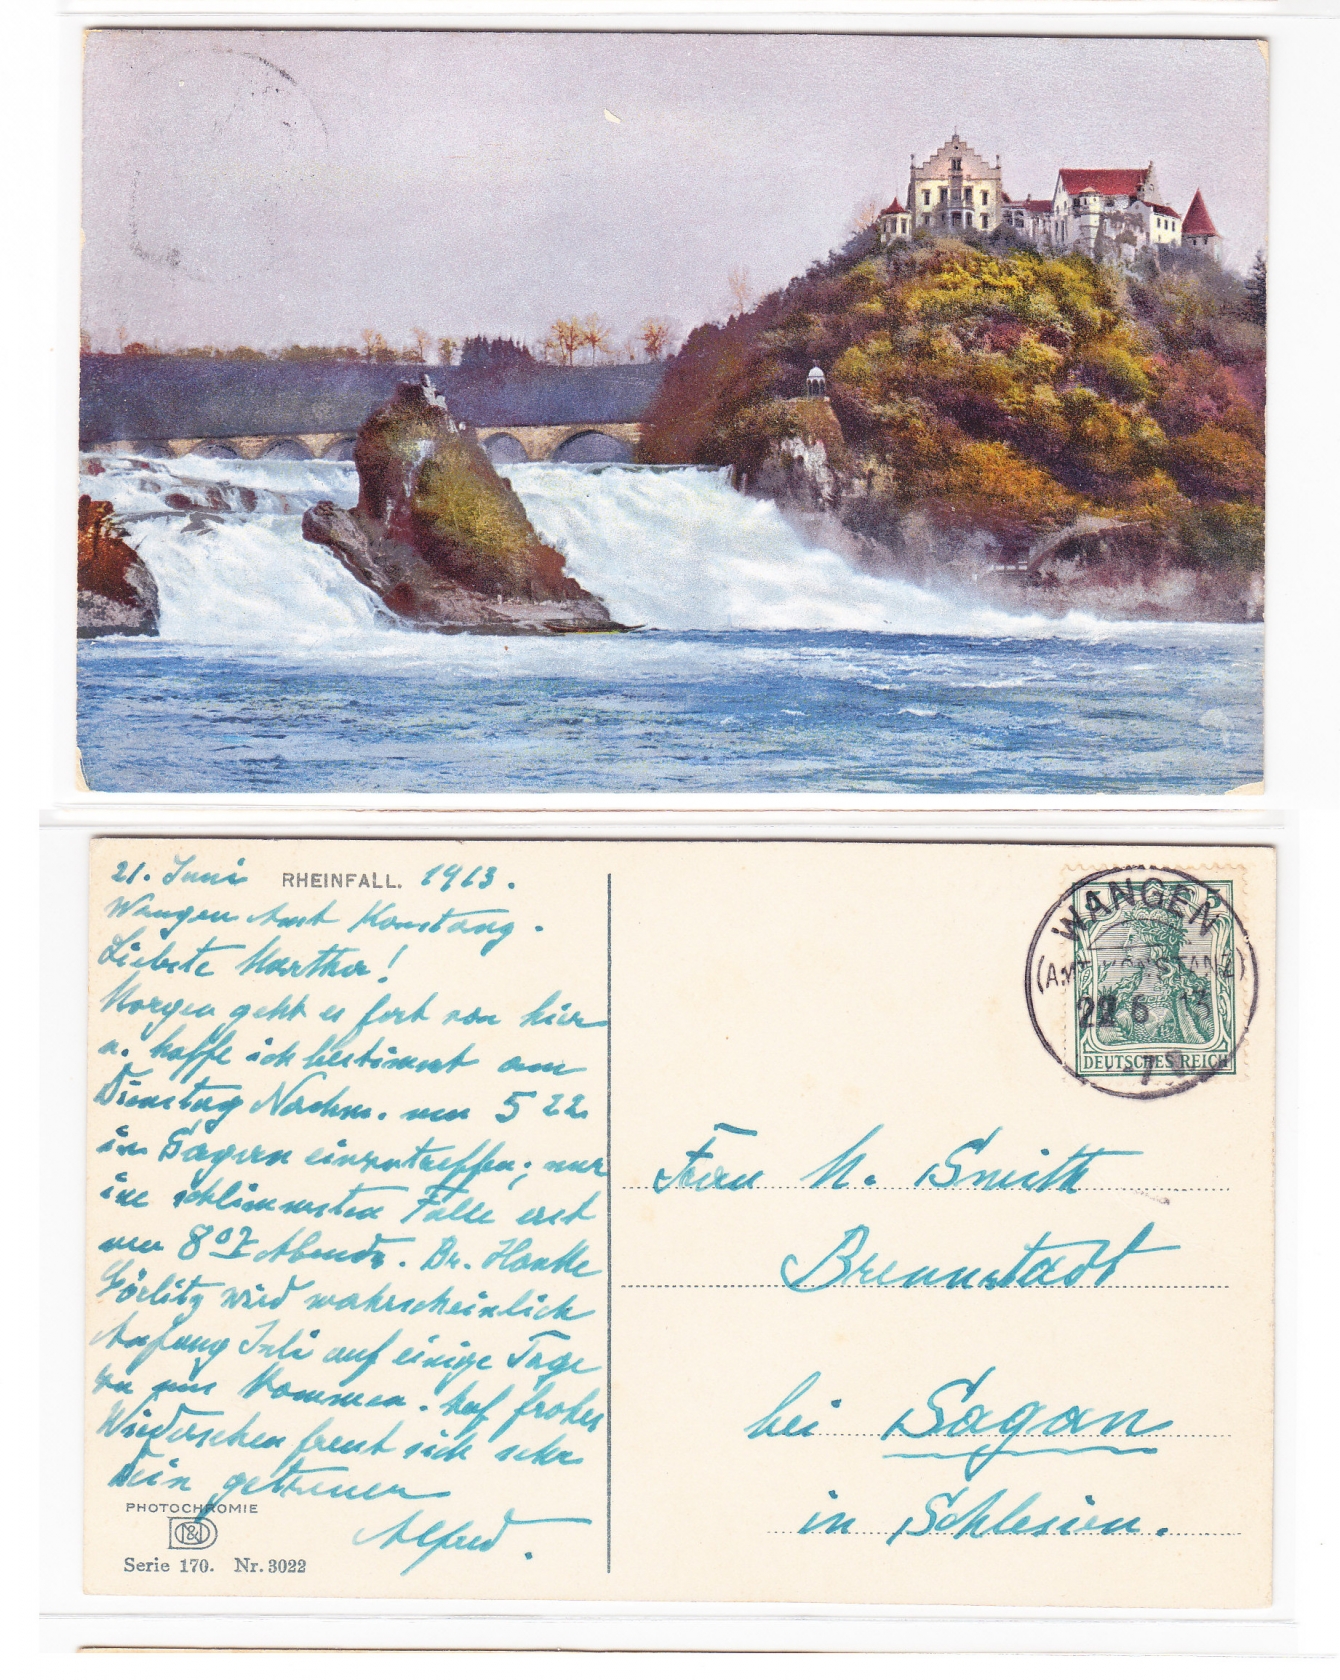 21. Juni RHEINFALL. 1913.
Wangen Amt Konstanz.
Liebste Martha!
Morgen geht es fort von hier
u. hoffe ich bestimmt am
Dienstag Nachm. um 5 22
in Sagan einzutreffen; nur
im schlimmsten Falle erst
um 8 07 Abends. Dr.
Görlitz wird wahrscheinlich
Anfang Juli auf einige Tage
zu uns kommen. Auf frohes
Wiedersehen freut sich sehr
Dein getreuer
Alfred.
PHOTOCHROMIE
Serie 170. Nr. 3022
WANGEN
(Amt KONSTANZ)
6 13
DEUTSCHES REICH
5
Frau M. Smith
Brennstadt
bei Sagan
in Schlesien.